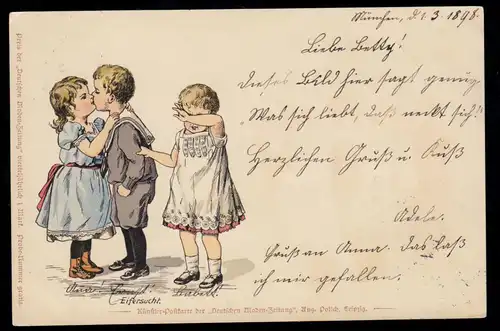 München, d. 3. 1898.
Liebe Betty!
Dieses Bild hier sagt genug
"Was sich liebt, das neckt sich!"
Herzlichen Gruß u. Kuß
Adele.
Gruß an Anna. Das laß
ich mir gefallen.
Eifersucht.
Künstler-Postkarte der „Deutschen Moden-Zeitung“, Aug. Polich, Leipzig.
Preis der „Deutschen Moden-Zeitung“ vierteljährlich 1 Mark. Probe-Nummern gratis.